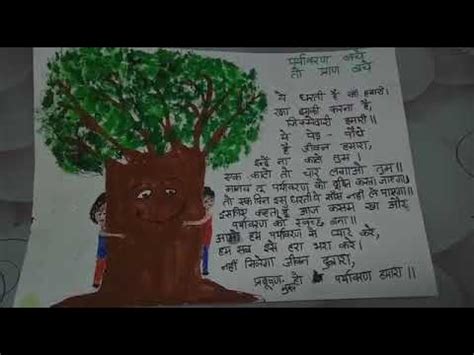 पर्यावरण बचे
तो प्राण बचे
ये धरती है माँ हमारी।
रक्षा इसकी करना है,
जिम्मेवारी हमारी॥
ये पेड़ - पौधे
है जीवन हमारा,
इन्हें ना काटो तुम।
एक काटो तो चार लगाओ तुम॥
मानव द पर्यावरण को दूषित करता जाएगा,
तो एक दिन इस धरती पे साँस नहीं ले पाएगा॥
इसलिए कहता है आज कसम खा और
पर्यावरण को स्वच्छ बना॥
आओ हम पर्यावरण से प्यार करे,
हम सब इसे हरा भरा करे।
नहीं मिलेगा जीवन दुबारा,
प्रदूषण मुक्त हो पर्यावरण हमारा॥